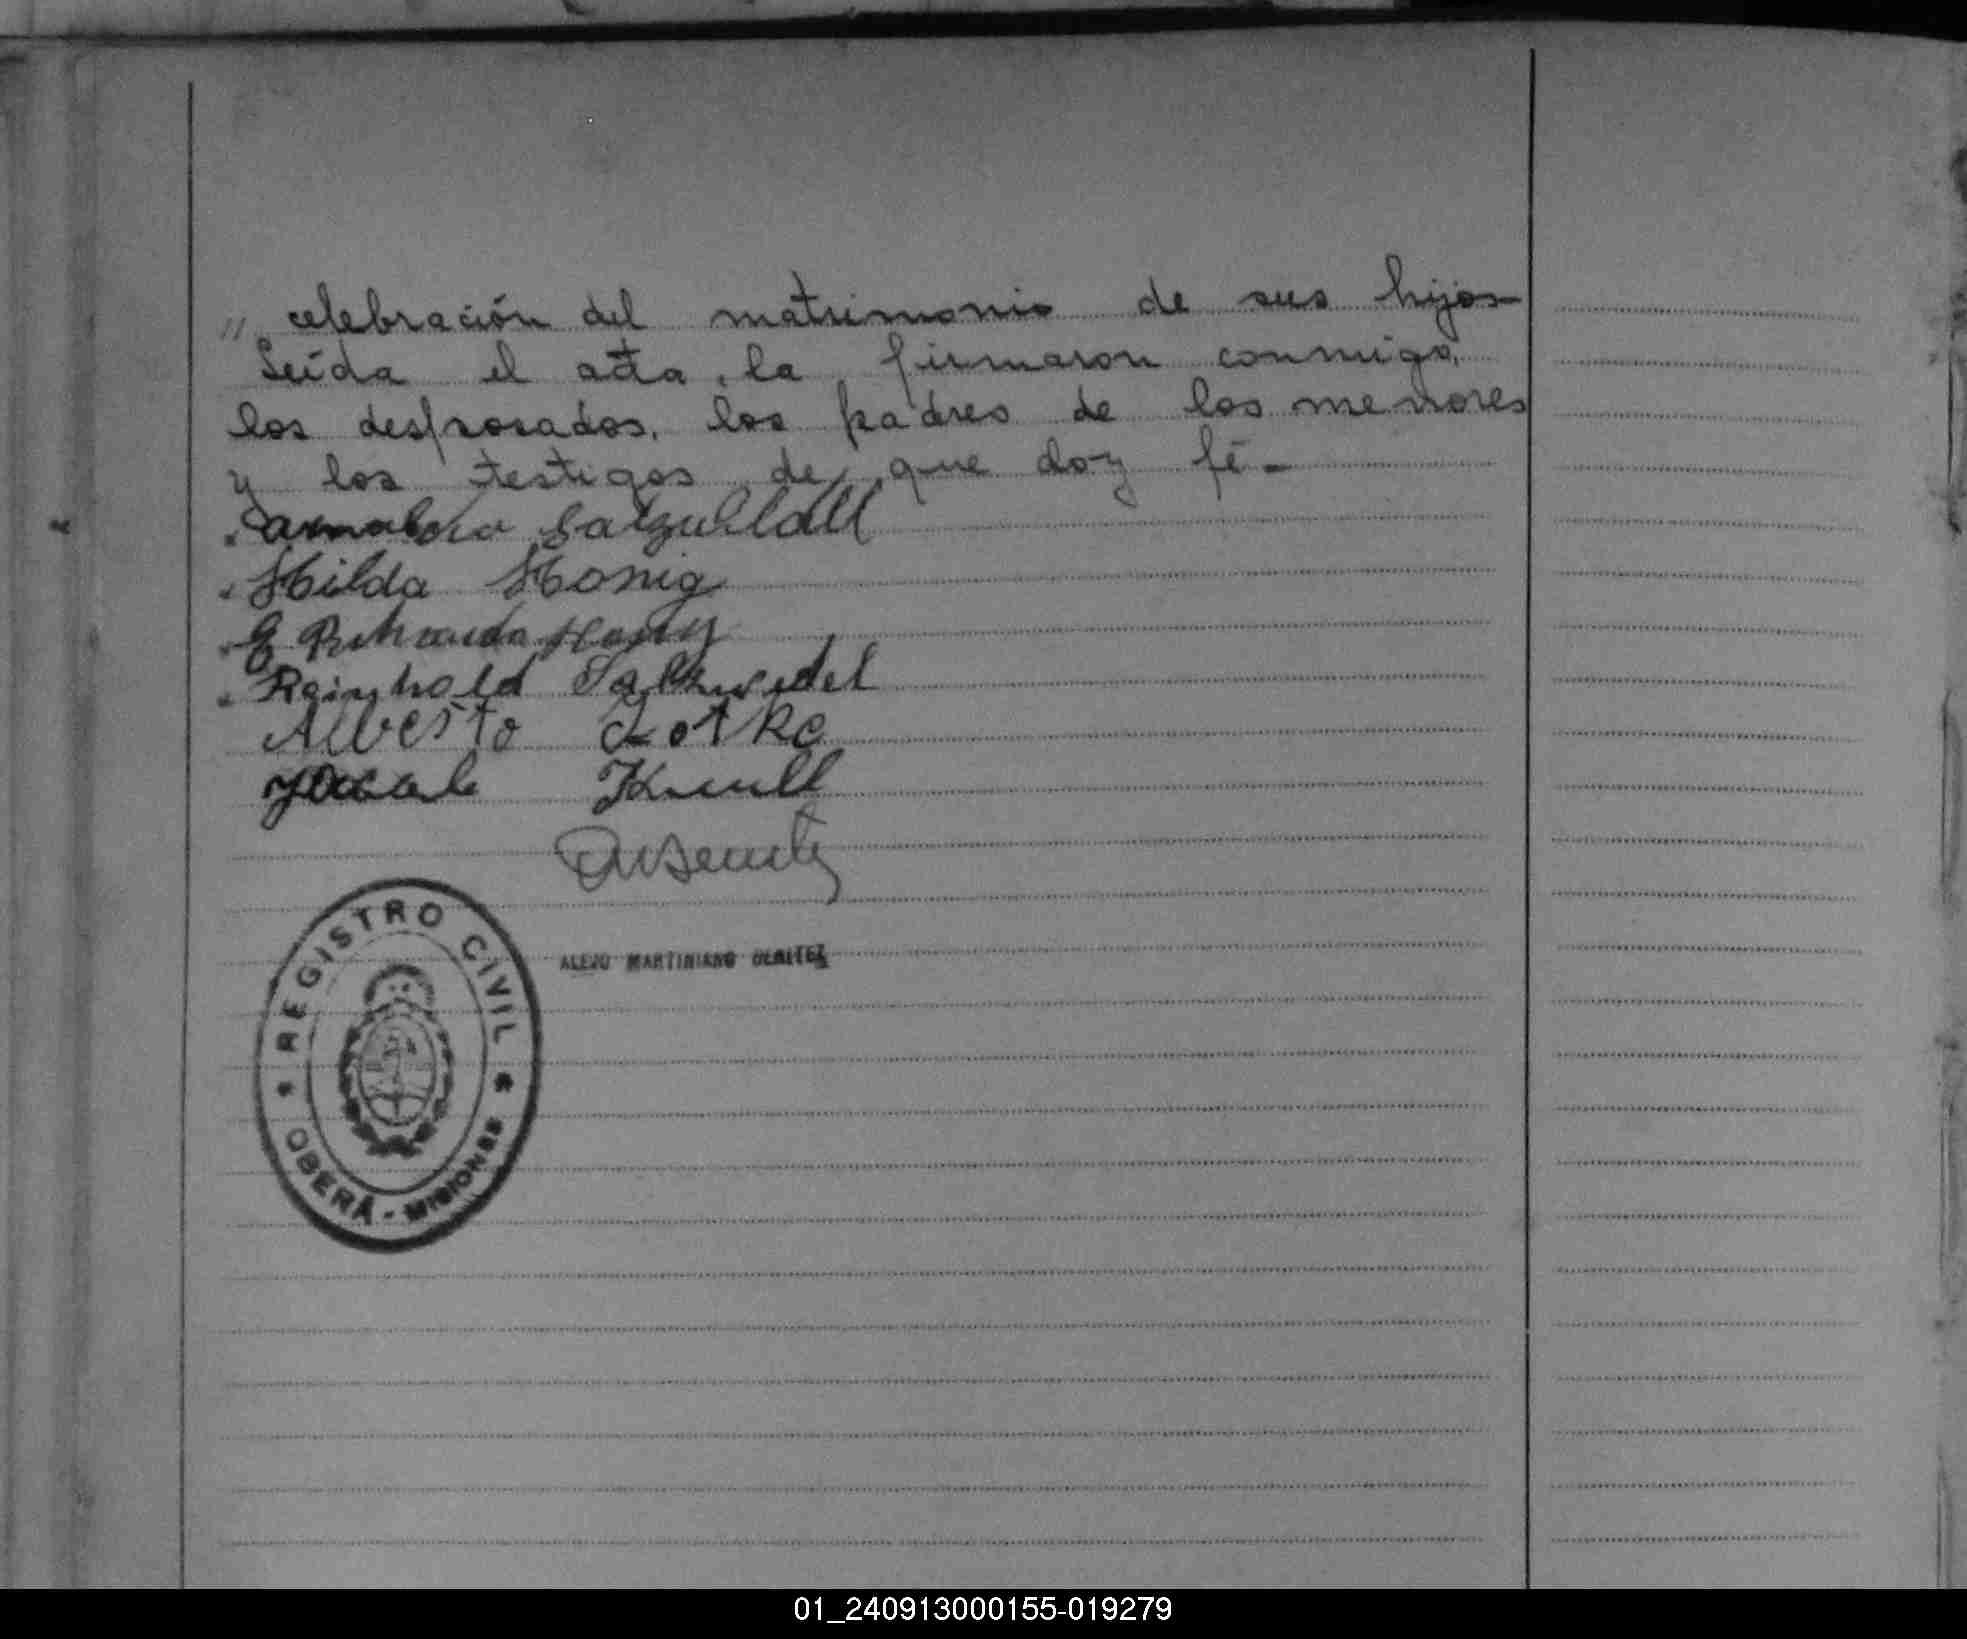 " celebración del matrimonio de sus hijos
Leída el acta, la firmaron conmigo,
los desposados, los padres de los menores
y los testigos de que doy fé -
Hilda Honig
Reinhold Salzwedel
Alberto
ALEJO MARTINIANO BENITEZ
REGISTRO CIVIL
OBERÁ - MISIONES
01_240913000155-019279